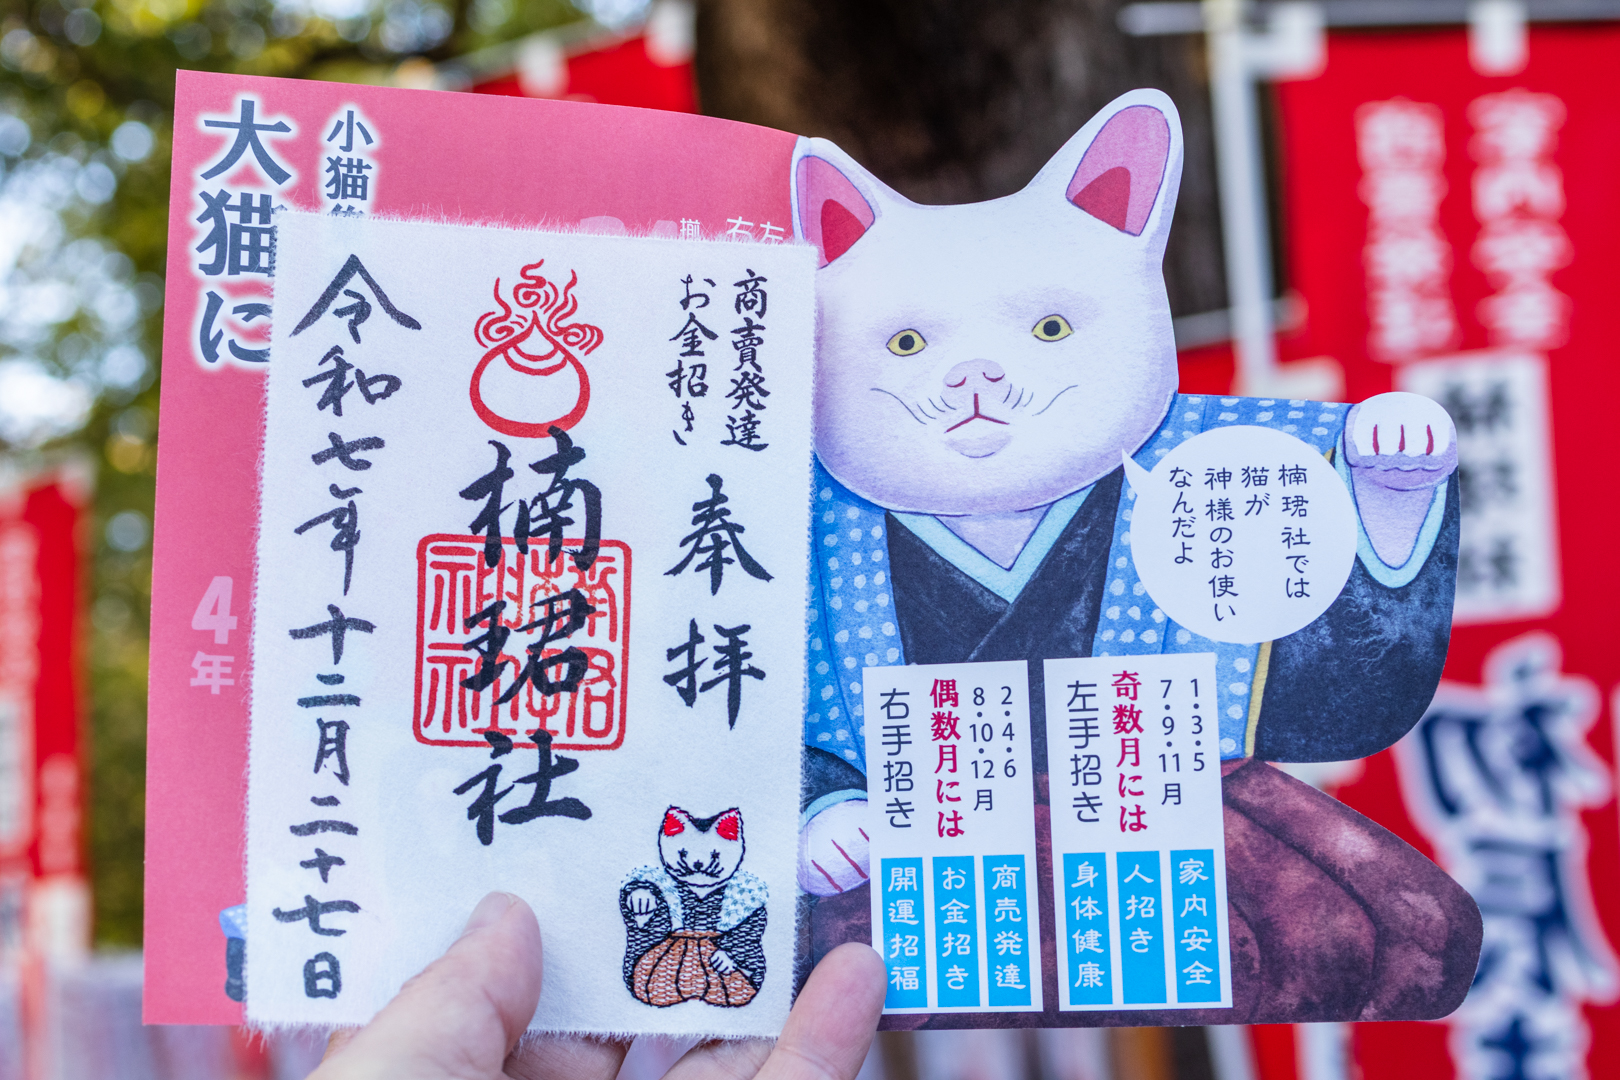 小猫
大猫に
4
年
左
右
揃
商賣発達
お金招き
奉拝
楠珺社
令和七年十二月二十七日
楠珺社では
猫が
神様のお使い
なんだよ
1・3・5
7・9・11月
奇数月には
左手招き
家内安全
人招き
身体健康
2・4・6
8・10・12月
偶数月には
右手招き
商売発達
お金招き
開運招福